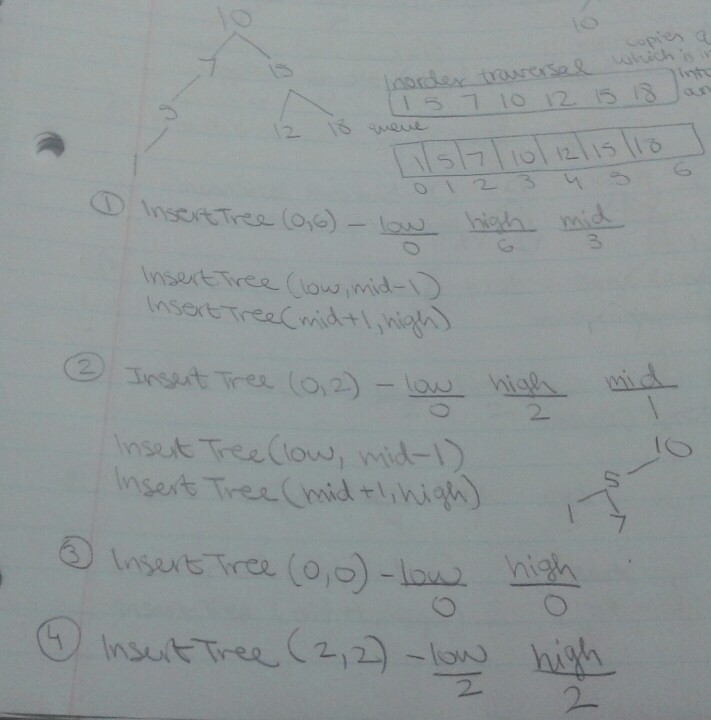 10
10
7 15
copies a
which is in
5
inorder traversal into
1 5 7 10 12 15 18 an
12 18 queue
1
1 5 7 10 12 15 18
0 1 2 3 4 5 6
① InsertTree (0,6) - low high mid
0 6 3
InsertTree (low, mid-1)
InsertTree (mid+1, high)
② Insert Tree (0,2) - low high mid
0 2 1
Insert Tree (low, mid-1)
Insert Tree (mid+1, high)
10
5
1 7
③ Insert Tree (0,0) - low high
0 0
④ Insert Tree (2,2) - low high
2 2